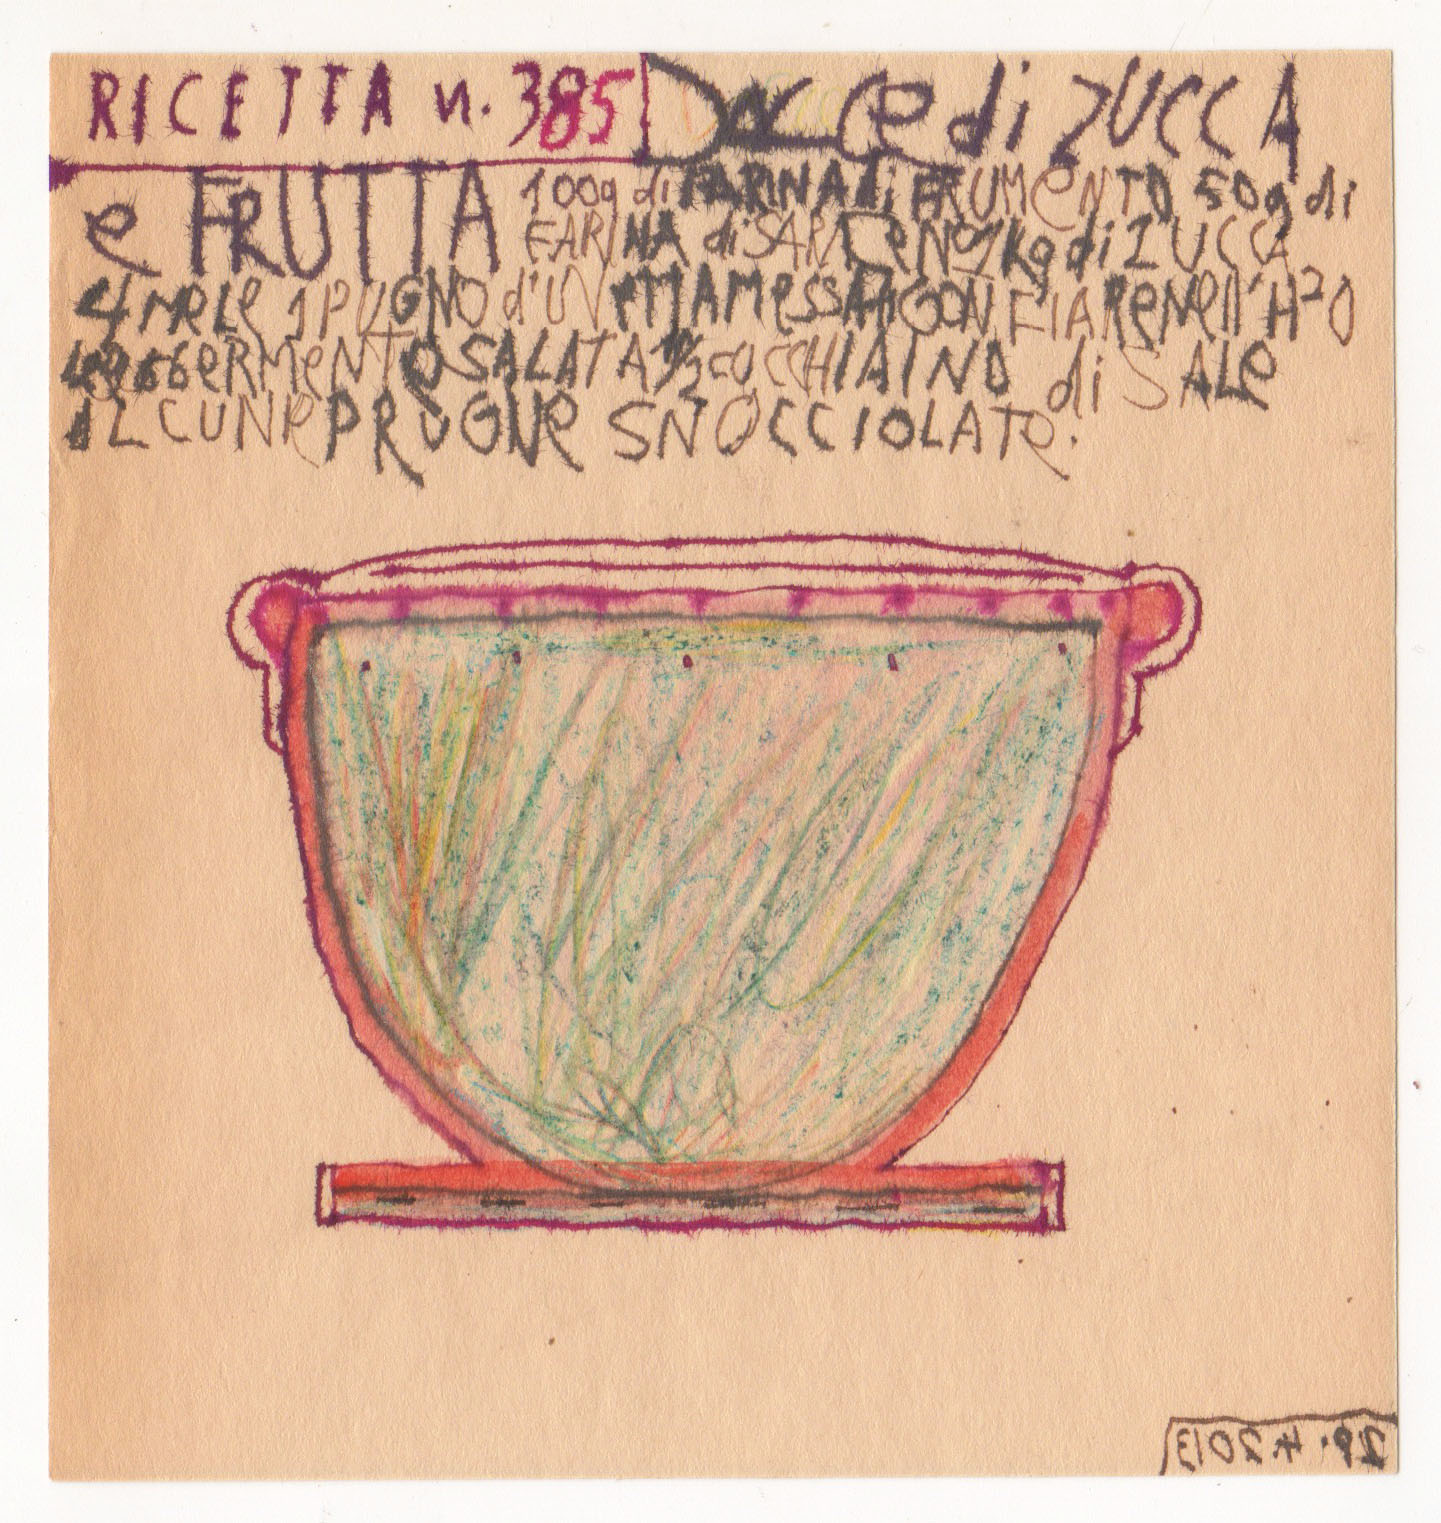 RICETTA n. 385 Dolce di ZUCCA
e FRUTTA 100g di FARINA di FRUMENTO 50g di
FARINA di SARACeNO 1Kg di ZUCCA
4 meLe 1 PUGNO d'UVettA MessA A GONFIARe Nell'H2O
LeggeRMeNTe SALATA 1/2 CUCCHIAINO di SALe
ALCUNe PRUGNe SNOCCIOLATe.
29.4.2013